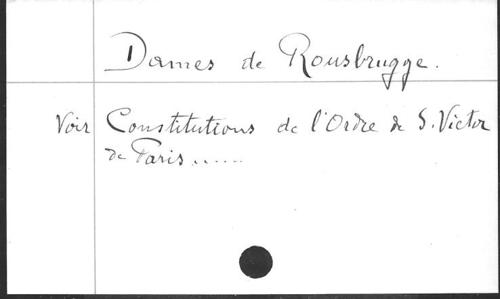 Dames de Rousbrugge.
Voir Constitutions de l'Ordre de S. Victor
de Paris......